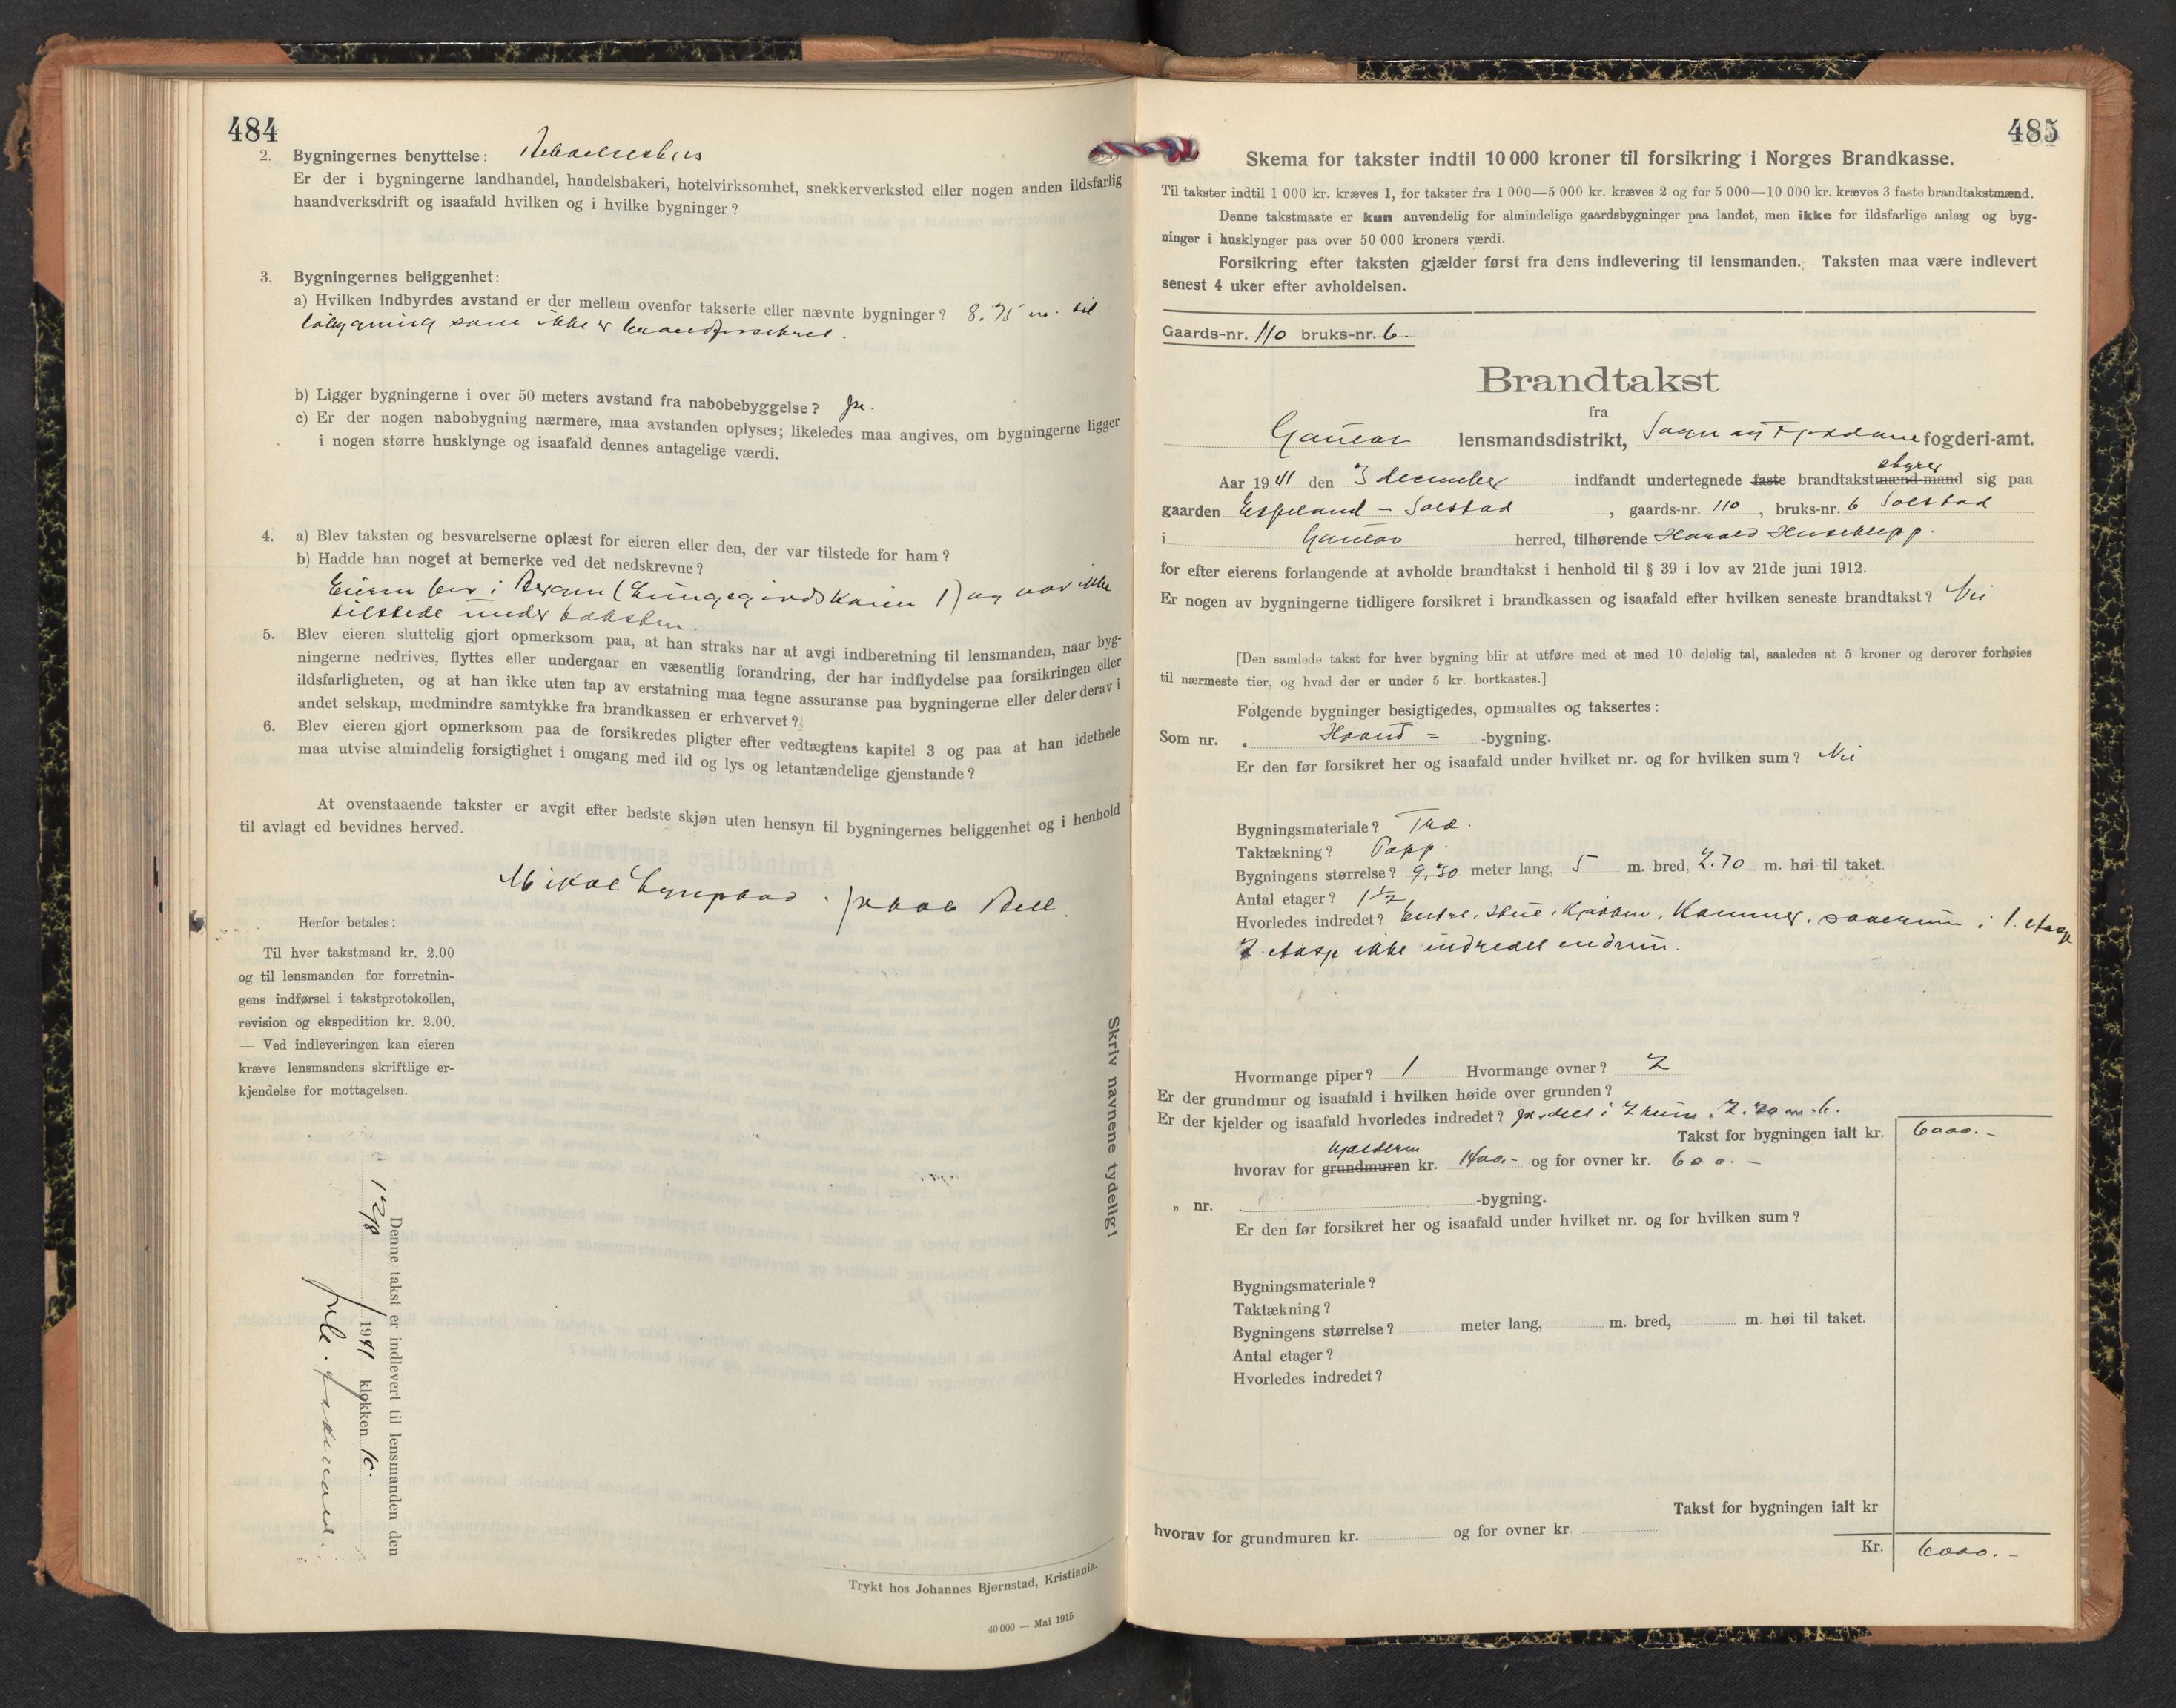 484
2. Bygningernes benyttelse: Beboelseshus
Er der i bygningerne landhandel, handelsbakeri, hotelvirksomhet, snekkerverksted eller nogen anden ildsfarlig
haandverksdrift og isaafald hvilken og i hvilke bygninger?
3. Bygningernes beliggenhet:
a) Hvilken indbyrdes avstand er der mellem ovenfor takserte eller nævnte bygninger? 8.75 m. til
som ikke er brandforsikret.
b) Ligger bygningerne i over 50 meters avstand fra nabobebyggelse? ja.
c) Er der nogen nabobygning nærmere, maa avstanden oplyses; likeledes maa angives, om bygningerne ligger
i nogen større husklynge og isaafald dennes antagelige værdi.
4. a) Blev taksten og besvarelserne oplæst for eieren eller den, der var tilstede for ham?
b) Hadde han noget at bemerke ved det nedskrevne?
Eieren bor i Bergen (Lungegårdskaien 1) og var ikke
tilstede under taksten.
5. Blev eieren sluttelig gjort opmerksom paa, at han straks har at avgi indberetning til lensmanden, naar byg-
ningerne nedrives, flyttes eller undergaar en væsentlig forandring, der har indflydelse paa forsikringen eller
ildsfarligheten, og at han ikke uten tap av erstatning maa tegne assuranse paa bygningerne eller deler derav i
andet selskap, medmindre samtykke fra brandkassen er erhvervet?
6. Blev eieren gjort opmerksom paa de forsikredes pligter efter vedtægtens kapitel 3 og paa at han idethele
maa utvise almindelig forsigtighet i omgang med ild og lys og letantændelige gjenstande?
At ovenstaaende takster er avgit efter bedste skjøn uten hensyn til bygningernes beliggenhet og i henhold
til avlagt ed bevidnes herved.
Mikal Jakob Bell.
Herfor betales:
Til hver takstmand kr. 2.00
og til lensmanden for forretnin-
gens indførsel i takstprotokollen,
revision og ekspedition kr. 2.00.
— Ved indleveringen kan eieren
kræve lensmandens skriftlige er-
kjendelse for mottagelsen.
Denne takst er indlevert til lensmanden den
1941 klokken 10.
Skriv navnene tydelig!
Trykt hos Johannes Bjørnstad, Kristiania.
40 000 — Mai 1915
485
Skema for takster indtil 10 000 kroner til forsikring i Norges Brandkasse.
Til takster indtil 1 000 kr. kræves 1, for takster fra 1 000—5 000 kr. kræves 2 og for 5 000—10 000 kr. kræves 3 faste brandtakstmænd.
Denne takstmaate er kun anvendelig for almindelige gaardsbygninger paa landet, men ikke for ildsfarlige anlæg og byg-
ninger i husklynger paa over 50 000 kroners værdi.
Forsikring efter taksten gjælder først fra dens indlevering til lensmanden. Taksten maa være indlevert
senest 4 uker efter avholdelsen.
Gaards-nr. 110 bruks-nr. 6.
Brandtakst
fra
Gaular lensmandsdistrikt, Sogn og Fjordane fogderi-amt.
Aar 1941 den 3 december indfandt undertegnede faste brandtakstmænd-mand styrer sig paa
gaarden Espeland - Solstad, gaards-nr. 110, bruks-nr. 6 Solstad
i Gaular herred, tilhørende Harald Huseklepp.
for efter eierens forlangende at avholde brandtakst i henhold til § 39 i lov av 21de juni 1912.
Er nogen av bygningerne tidligere forsikret i brandkassen og isaafald efter hvilken seneste brandtakst? Nei
[Den samlede takst for hver bygning blir at utføre med et med 10 delelig tal, saaledes at 5 kroner og derover forhøies
til nærmeste tier, og hvad der er under 5 kr. bortkastes.]
Følgende bygninger besigtigedes, opmaaltes og taksertes:
Som nr. Hovud = -bygning.
Er den før forsikret her og isaafald under hvilket nr. og for hvilken sum? Nei
Bygningsmateriale? Træ.
Taktækning? Papp.
Bygningens størrelse? 9,30 meter lang, 5 m. bred, 2.70 m. høi til taket.
Antal etager? 1½
Hvorledes indredet? Entre, stue, kjøkken, kammer, soverum i 1. etasje
2. etasje ikke indredet endnu.
Hvormange piper? 1 Hvormange ovner? 2
Er der grundmur og isaafald i hvilken høide over grunden?
Er der kjelder og isaafald hvorledes indredet? ja, delt i 2 rum. 2.20 m. h.
Takst for bygningen ialt kr. 6000.-
kjelderen
hvorav for grundmuren kr. 1400.- og for ovner kr. 600.-
„ nr. -bygning.
Er den før forsikret her og isaafald under hvilket nr. og for hvilken sum?
Bygningsmateriale?
Taktækning?
Bygningens størrelse? meter lang, m. bred, m. høi til taket.
Antal etager?
Hvorledes indredet?
Takst for bygningen ialt kr
hvorav for grundmuren kr. og for ovner kr.
Kr. 6000.-